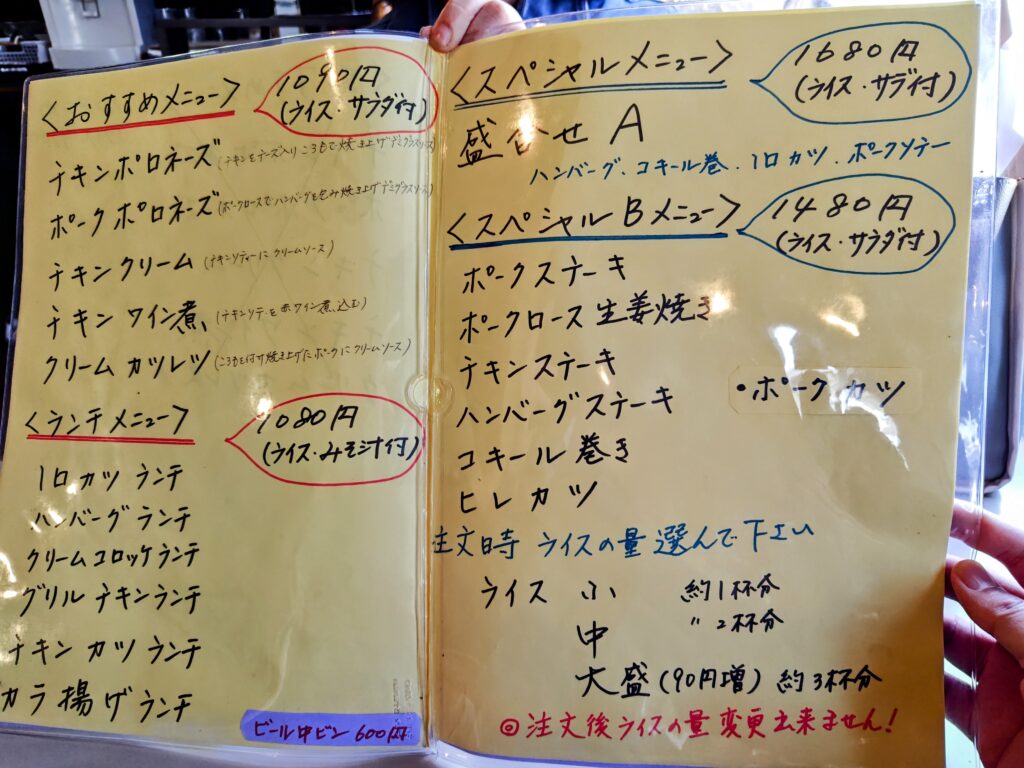 〈おすすめメニュー〉
1090円
(ライス・サラダ付)
チキンボロネーズ(チキンをチーズ入りころもで焼き上げデミグラスソース)
ポークボロネーズ(ポークロースでハンバーグを包み焼き上げデミグラスソース)
チキンクリーム(チキンソティーにクリームソース)
チキンワイン煮(チキンソテーを赤ワイン煮込む)
クリームカツレツ(ころもを付け焼き上げたポークにクリームソース)
〈ランチメニュー〉
1080円
(ライス・みそ汁付)
1口カツランチ
ハンバーグランチ
クリームコロッケランチ
グリルチキンランチ
チキンカツランチ
カラ揚げランチ
ビール中ビン600円
〈スペシャルメニュー〉
1680円
(ライス・サラダ付)
盛合せA
ハンバーグ、コキール巻、1口カツ、ポークソテー
〈スペシャルBメニュー〉
1480円
(ライス・サラダ付)
ポークステーキ
ポークロース生姜焼き
チキンステーキ
ハンバーグステーキ
・ポークカツ
コキール巻き
ヒレカツ
注文時 ライスの量選んで下さい
ライス 小 約1杯分
中 〃2杯分
大盛(90円増)約3杯分
◎注文後ライスの量変更出来ません!